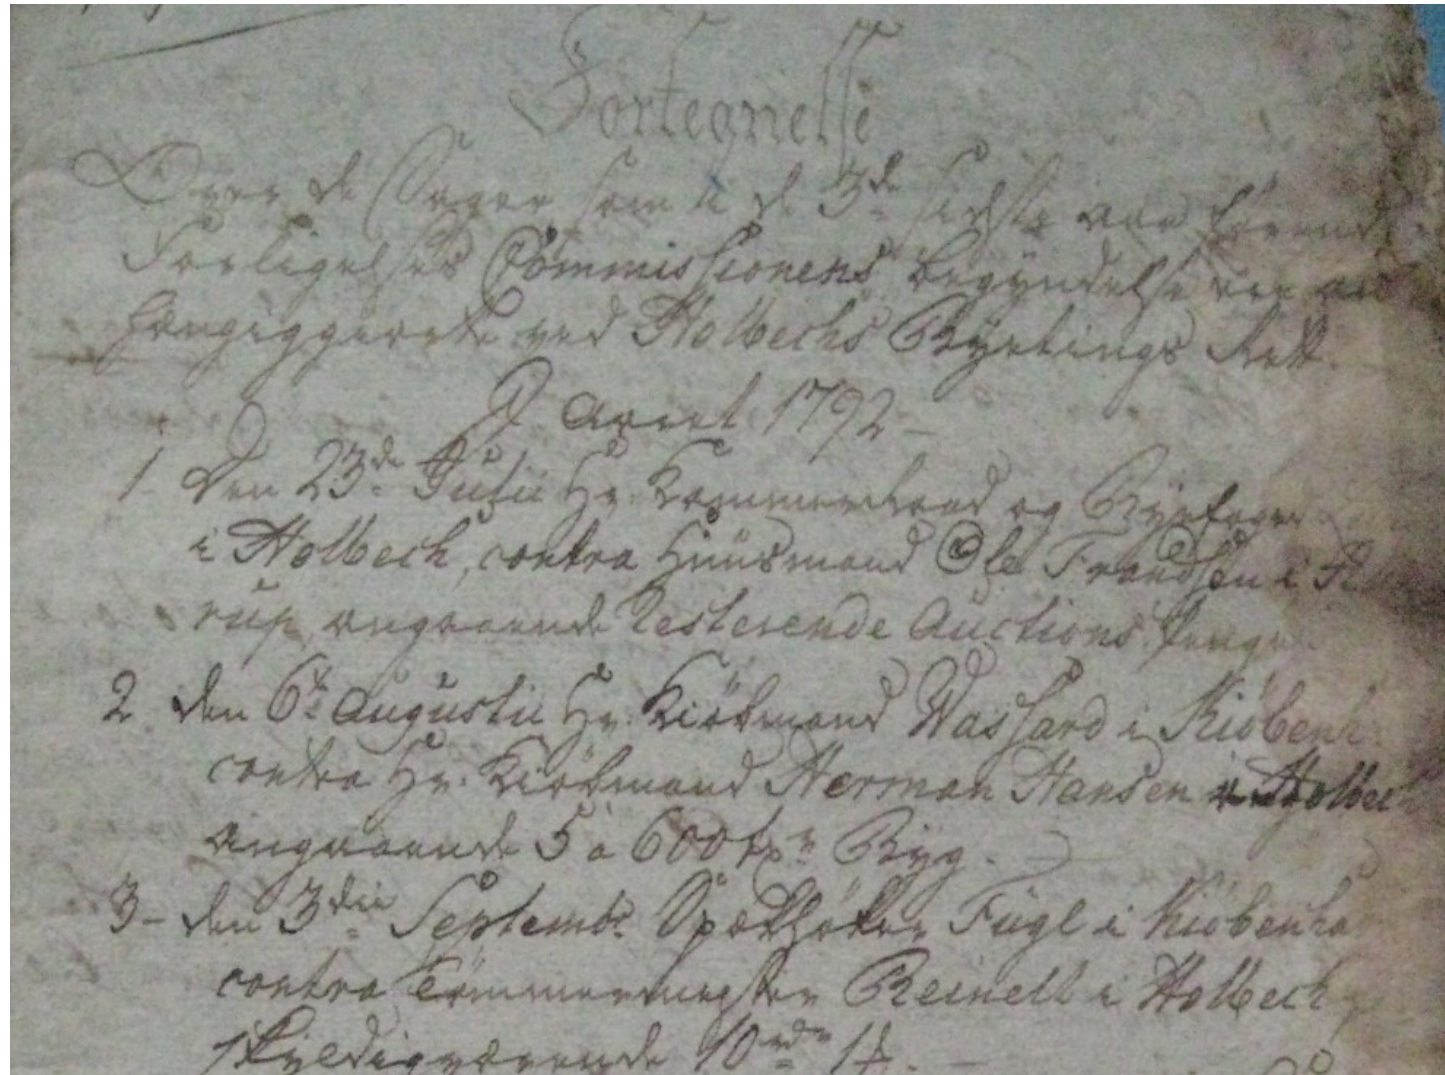 Fortegnelse
Over de Sager som i de 3de sidste aar förend
Forligelses Commissionens begyndelse var an
hængiggjorte ved Holbechs Byetings Rett.
I Aaret 1792 –
1. Den 23de Julii Hr. Kammerraad og Byefoged
i Holbech, contra Huusmand Ole Frandsen i
rup, angaaende Resterende Auctions Penge
2 den 6te Augustii Hr. Kiöbmand Wassard i Kiöbenh
contra Hr. Kiöbmand Herman Hansen i Holbech
angaaende 5 a 600 tdr Byg.
3 – den 3die Septembr. Spækhöker Fugl i Kiöbenha
contra Tömmermester Reinelt i Holbech
skyldigværende 10 rdr 1